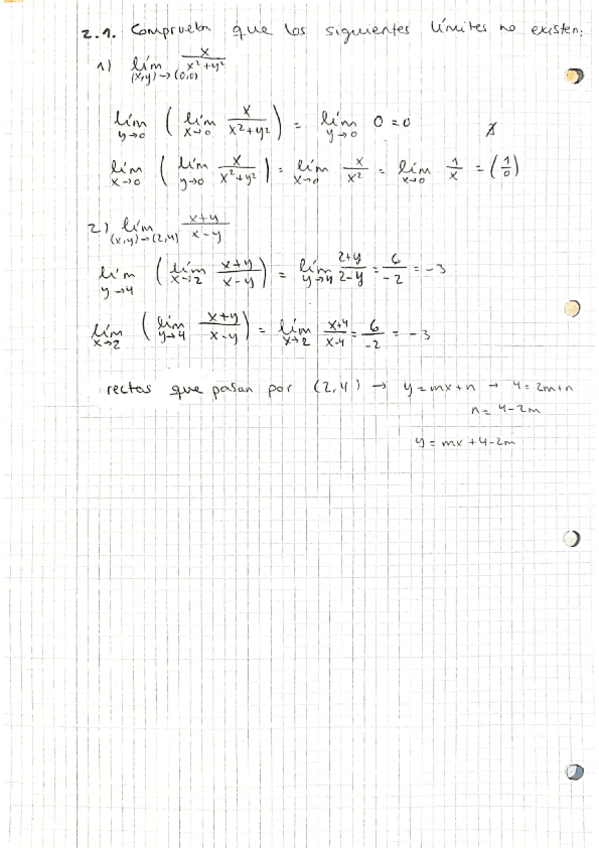 2.1. Comprueba que los siguientes límites no existen:
1) lím (x,y)→(0,0) x/(x²+y²)
lím y→0 ( lím x→0 x/(x²+y²) ) = lím y→0 0 = 0
∄
lím x→0 ( lím y→0 x/(x²+y²) ) = lím x→0 x/x² = lím x→0 1/x = (1/0)
2) lím (x,y)→(2,4) (x+y)/(x-y)
lím y→4 ( lím x→2 (x+y)/(x-y) ) = lím y→4 (2+y)/(2-y) = 6/-2 = -3
lím x→2 ( lím y→4 (x+y)/(x-y) ) = lím x→2 (x+4)/(x-4) = 6/-2 = -3
rectas que pasan por (2,4) → y=mx+n → 4=2m+n
n=4-2m
y=mx+4-2m